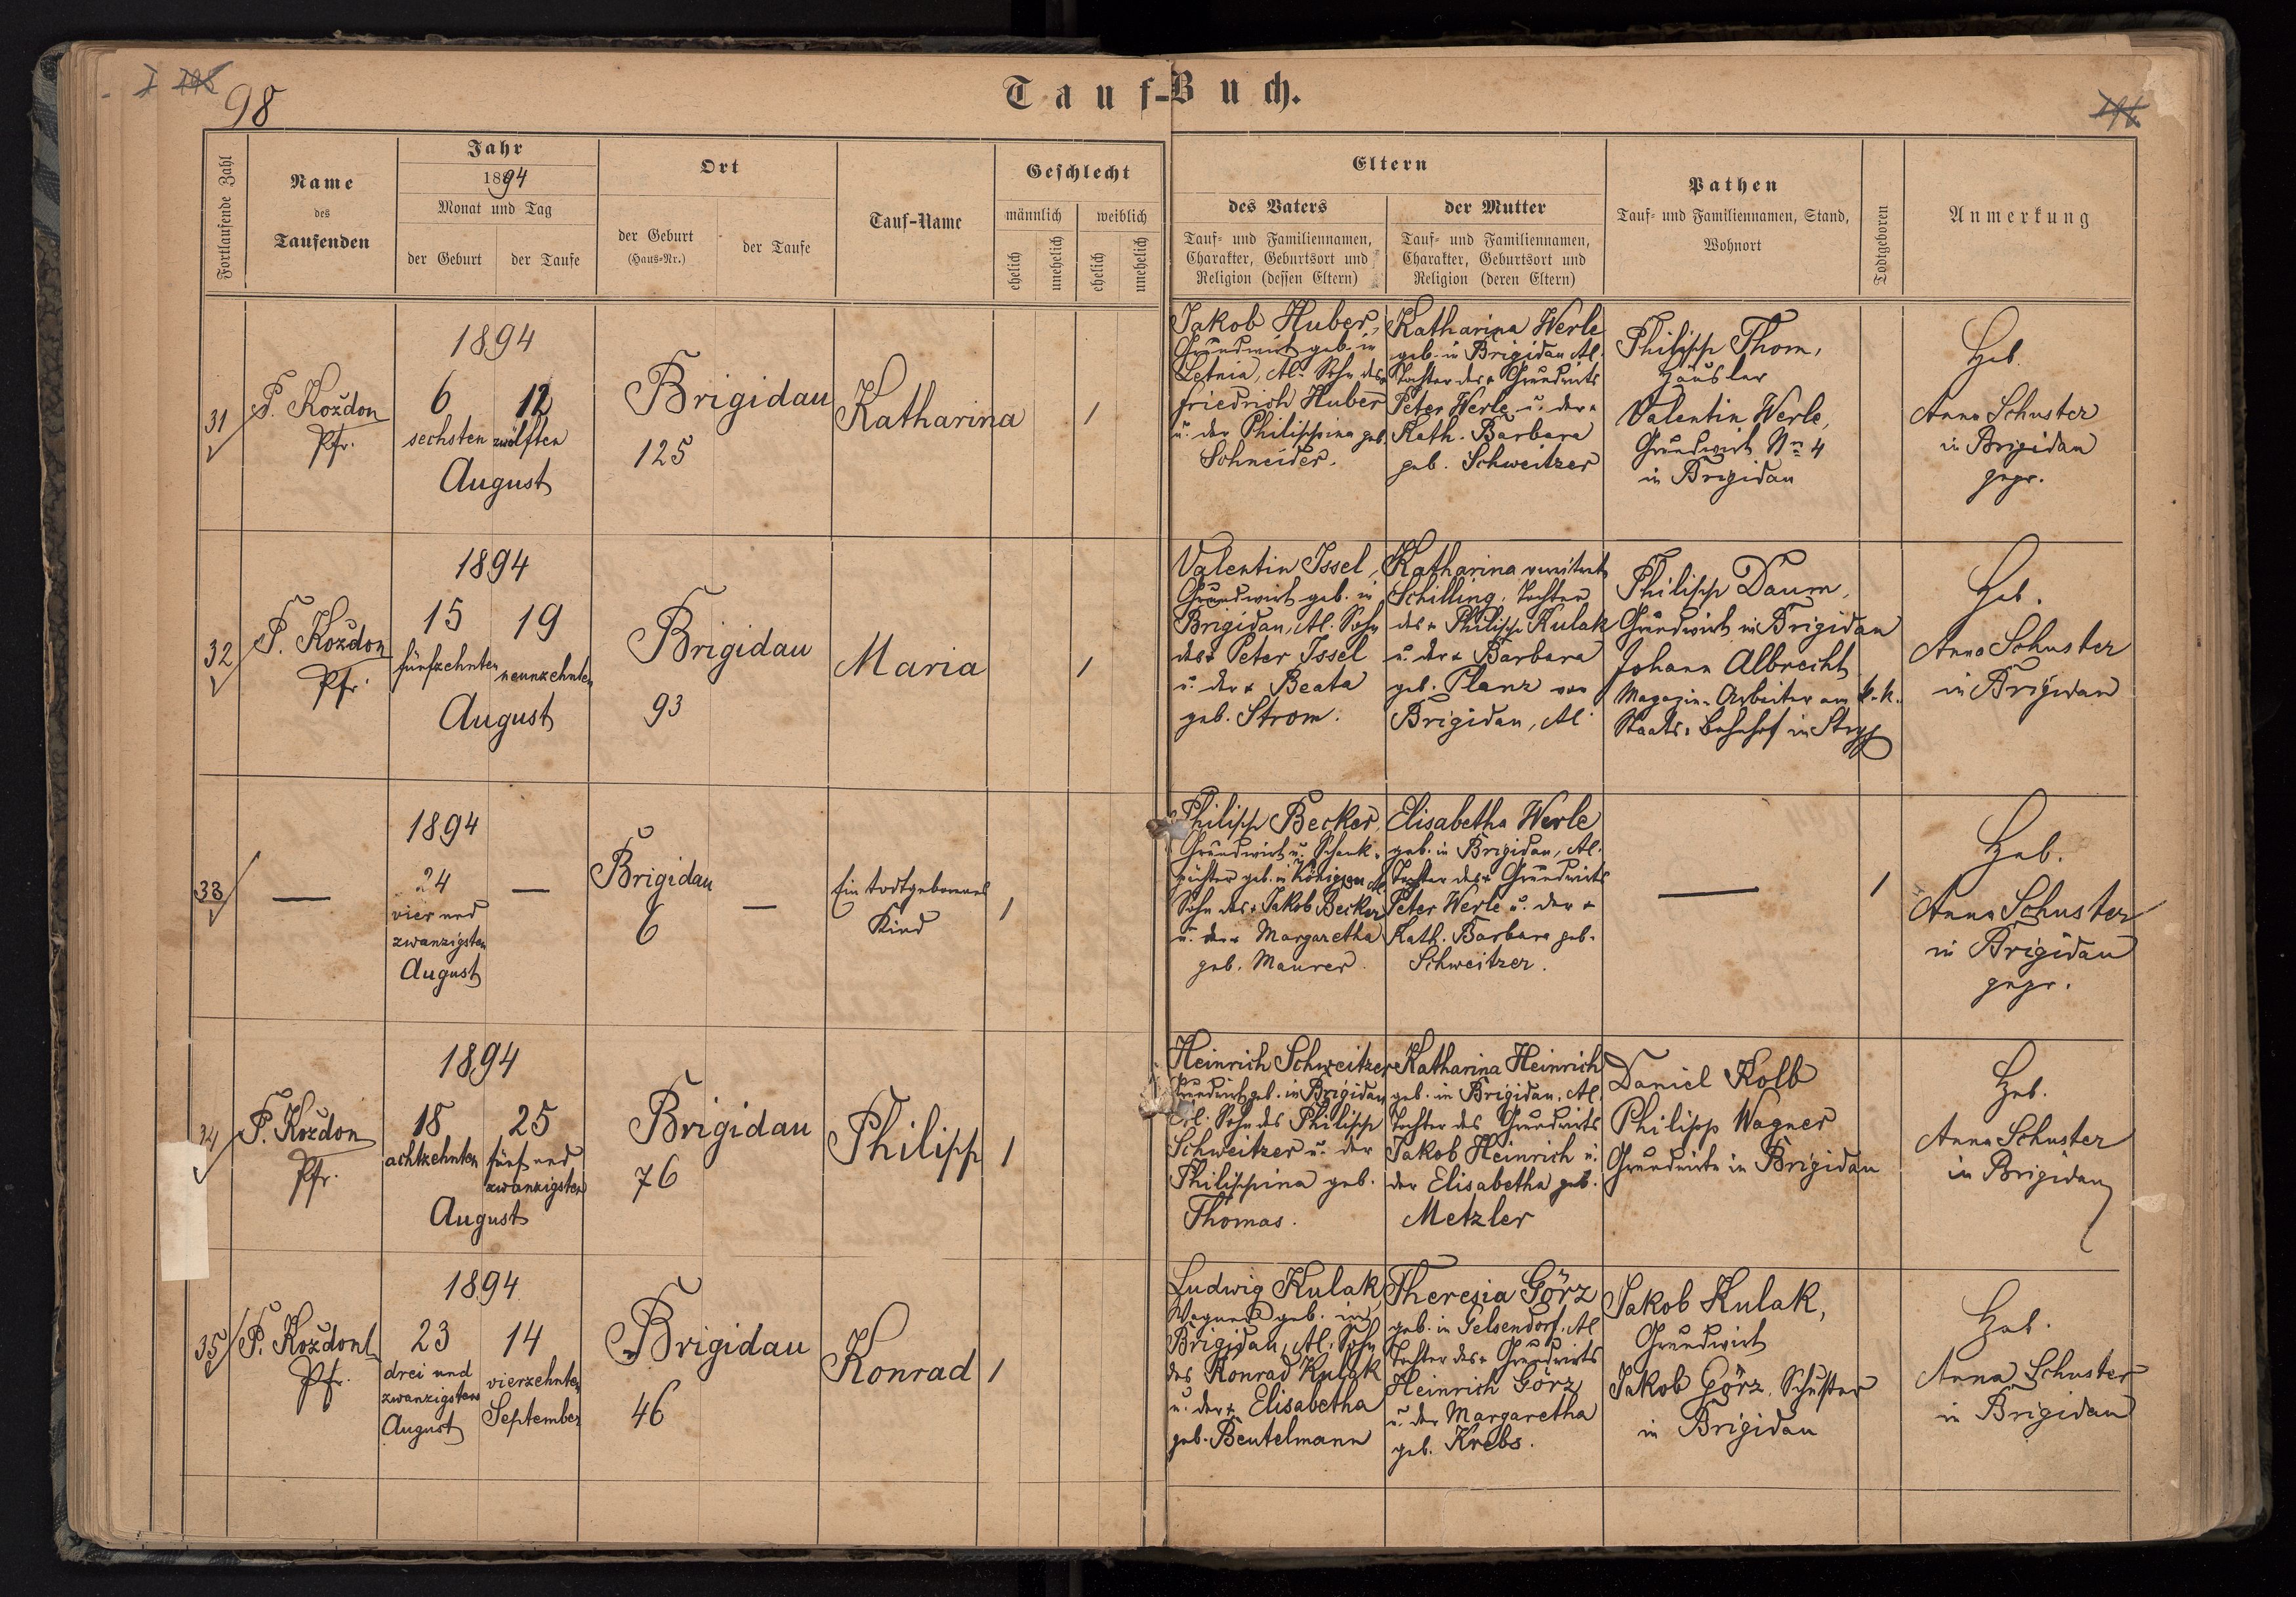 98
Tauf-Buch.
Fortlaufende Zahl
Name
des
Taufenden
Jahr
1894
Monat und Tag
der Geburt
der Taufe
Ort
der Geburt
(Haus-Nr.)
der Taufe
Tauf-Name
Geschlecht
männlich
weiblich
ehelich
unehelich
ehelich
unehelich
Eltern
des Vaters
Tauf- und Familiennamen,
Charakter, Geburtsort und
Religion (dessen Eltern)
der Mutter
Tauf- und Familiennamen,
Charakter, Geburtsort und
Religion (deren Eltern)
Pathen
Tauf- und Familiennamen, Stand,
Wohnort
Todtgeboren
Anmerkung
31
P. Koždon
Pfr.
1894
6 12
sechsten zwölften
August
Brigidau
125
Katharina
1
Jakob Huber,
Grundwirt geb. in
Letnia, Al. Sohn des
Friedrich Huber
u. der Philippina geb.
Schneider.
Katharina Werle
geb. in Brigidau Al.
Tochter des + Grundwirts
Peter Werle u. der +
Kath. Barbara
geb. Schweitzer
Philipp Thom,
Häusler
Valentin Werle,
Grundwirt Nr. 4
in Brigidau
Heb.
Anna Schuster
in Brigidau
gepr.
32
P. Koždon
Pfr.
1894
15 19
fünfzehnten neunzehnten
August
Brigidau
93
Maria
1
Valentin Issel,
Grundwirt geb. in
Brigidau, Al. Sohn
des + Peter Issel
u. der + Beata
geb. Strom.
Katharina verwitwete
Schilling, Tochter
des + Philipp Kulak
u. der + Barbara
geb. Planz von
Brigidau, Al.
Philipp Daum,
Grundwirt in Brigidau
Johann Albrecht
Magazin-Arbeiter am k.k.
Staats-Bahnhof in Stryj
Heb.
Anna Schuster
in Brigidau
33
—
1894
24
vier und
zwanzigsten
August
—
Brigidau
6
—
Ein todtgeborenes
Kind
1
Philipp Becker,
Grundwirt u. Schank-
pächter geb. in Königsau Al.
Sohn des + Jakob Becker
u. der + Margaretha
geb. Maurer.
Elisabetha Werle
geb. in Brigidau, Al.
Tochter des + Grundwirts
Peter Werle u. der +
Kath. Barbara geb.
Schweitzer.
—
1
Heb.
Anna Schuster
in Brigidau
gepr.
34
P. Koždon
Pfr.
1894
18 25
achtzehnten fünf und
zwanzigsten
August
Brigidau
76
Philipp
1
Heinrich Schweitzer
Grundwirt geb. in Brigidau
Al. Sohn des Philipp
Schweitzer u. der
Philippina geb.
Thomas.
Katharina Heinrich
geb. in Brigidau, Al.
Tochter des Grundwirts
Jakob Heinrich u.
der Elisabetha geb.
Metzler
Daniel Kolb
Philipp Wagner
Grundwirte in Brigidau
Heb.
Anna Schuster
in Brigidau
35
P. Koždon
Pfr.
1894
23 14
drei und
zwanzigsten
August
vierzehnten
September
Brigidau
46
Konrad
1
Ludwig Kulak,
Wagner geb. in
Brigidau, Al. Sohn
des Konrad Kulak
u. der + Elisabetha
geb. Beutelmann
Theresia Görz
geb. in Gelsendorf, Al.
Tochter des + Grundwirts
Heinrich Görz
u. der Margaretha
geb. Krebs.
Jakob Kulak,
Grundwirt
Jakob Görz, Schuster
in Brigidau
Heb.
Anna Schuster
in Brigidau